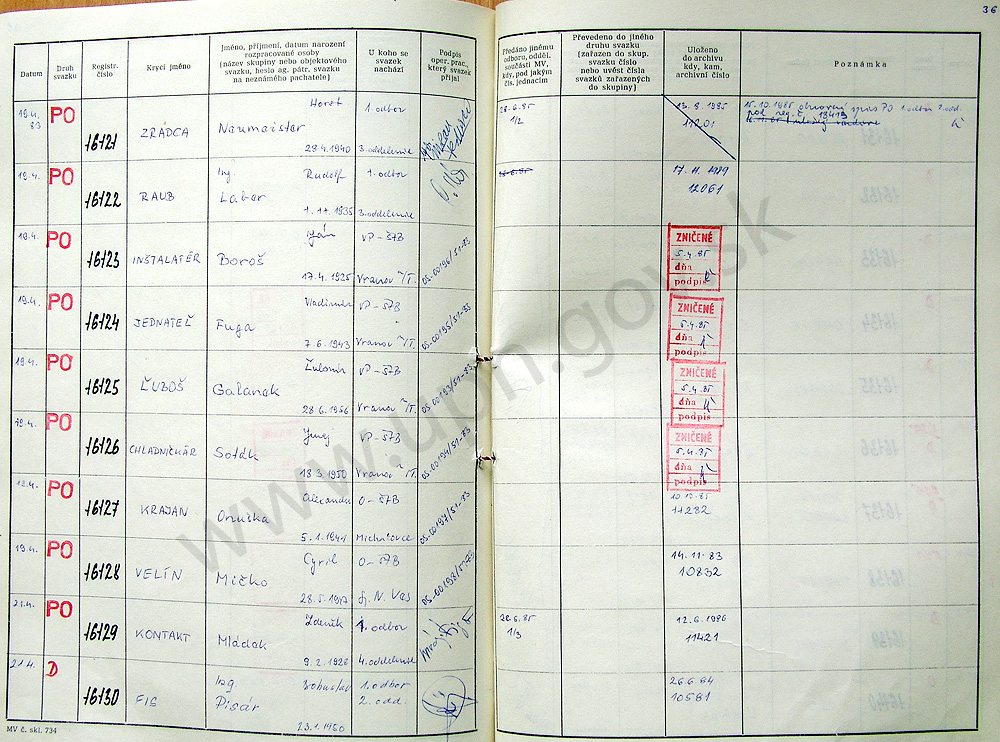 36
Datum
Druh svazku
Registr. číslo
Krycí jméno
Jméno, příjmení, datum narození rozpracované osoby (název skupiny nebo objektového svazku, heslo ag. pátr. svazku na neznámého pachatele)
U koho se svazek nachází
Podpis oper. prac., který svazek přijal
Předáno jinému odboru, odděl. součásti MV, kdy, pod jakým čís. jednacím
Převedeno do jiného druhu svazku (zařazen do skup. svazku číslo nebo uvést čísla svazků zařazených do skupiny)
Uloženo do archivu kdy, kam, archivní číslo
Poznámka
19.4. 83 PO 16121 ZRADCA Horst Naumaister 28.4.1940 1. odbor 3. oddelenie 28.6.85 1/2 13.8.1985 11201
19.4. PO 16122 RAUB Ing. Rudolf Laber 1.11.1935 1. odbor 3. oddelenie 17.11.1989 12061
19.4. PO 16123 INŠTALATÉR Ján Boroš 17.4.1925 VP-ŠTB Vranov n/T. OS-00196/51-83 ZNIČENÉ 5.4.85 dňa podpis
19.4. PO 16124 JEDNATEĽ Vladimír Fuga 7.6.1943 VP-ŠTB Vranov n/T. OS-00195/51-83 ZNIČENÉ 5.4.85 dňa podpis
19.4. PO 16125 ĽUBOŠ Ľubomír Galanek 28.6.1956 VP-ŠTB Vranov n/T. OS-00193/51-83 ZNIČENÉ 5.4.85 dňa podpis
19.4. PO 16126 CHLADNIČKÁR Juraj Soták 18.3.1950 VP-ŠTB Vranov n/T. OS-00194/51-83 ZNIČENÉ 5.4.85 dňa podpis
19.4. PO 16127 KRAJAN Alexander Onuška 5.1.1941 O-ŠTB Michalovce OS-00197/51-83 10.10.85 11282
19.4. PO 16128 VELÍN Cyril Mičko 28.5.1947 O-ŠTB Sp. N. Ves OS-00198/51-83 14.11.83 10832
21.4. PO 16129 KONTAKT Zdeněk Mládek 9.2.1926 1. odbor 4. oddelenie 28.6.85 1/3 12.6.1986 11421
21.4. D 16130 FIS Ing Bohuslav Pisár 23.1.1950 1. odbor 2. odd. 26.6.84 10581
MV č. skl. 734
www.upn.gov.sk